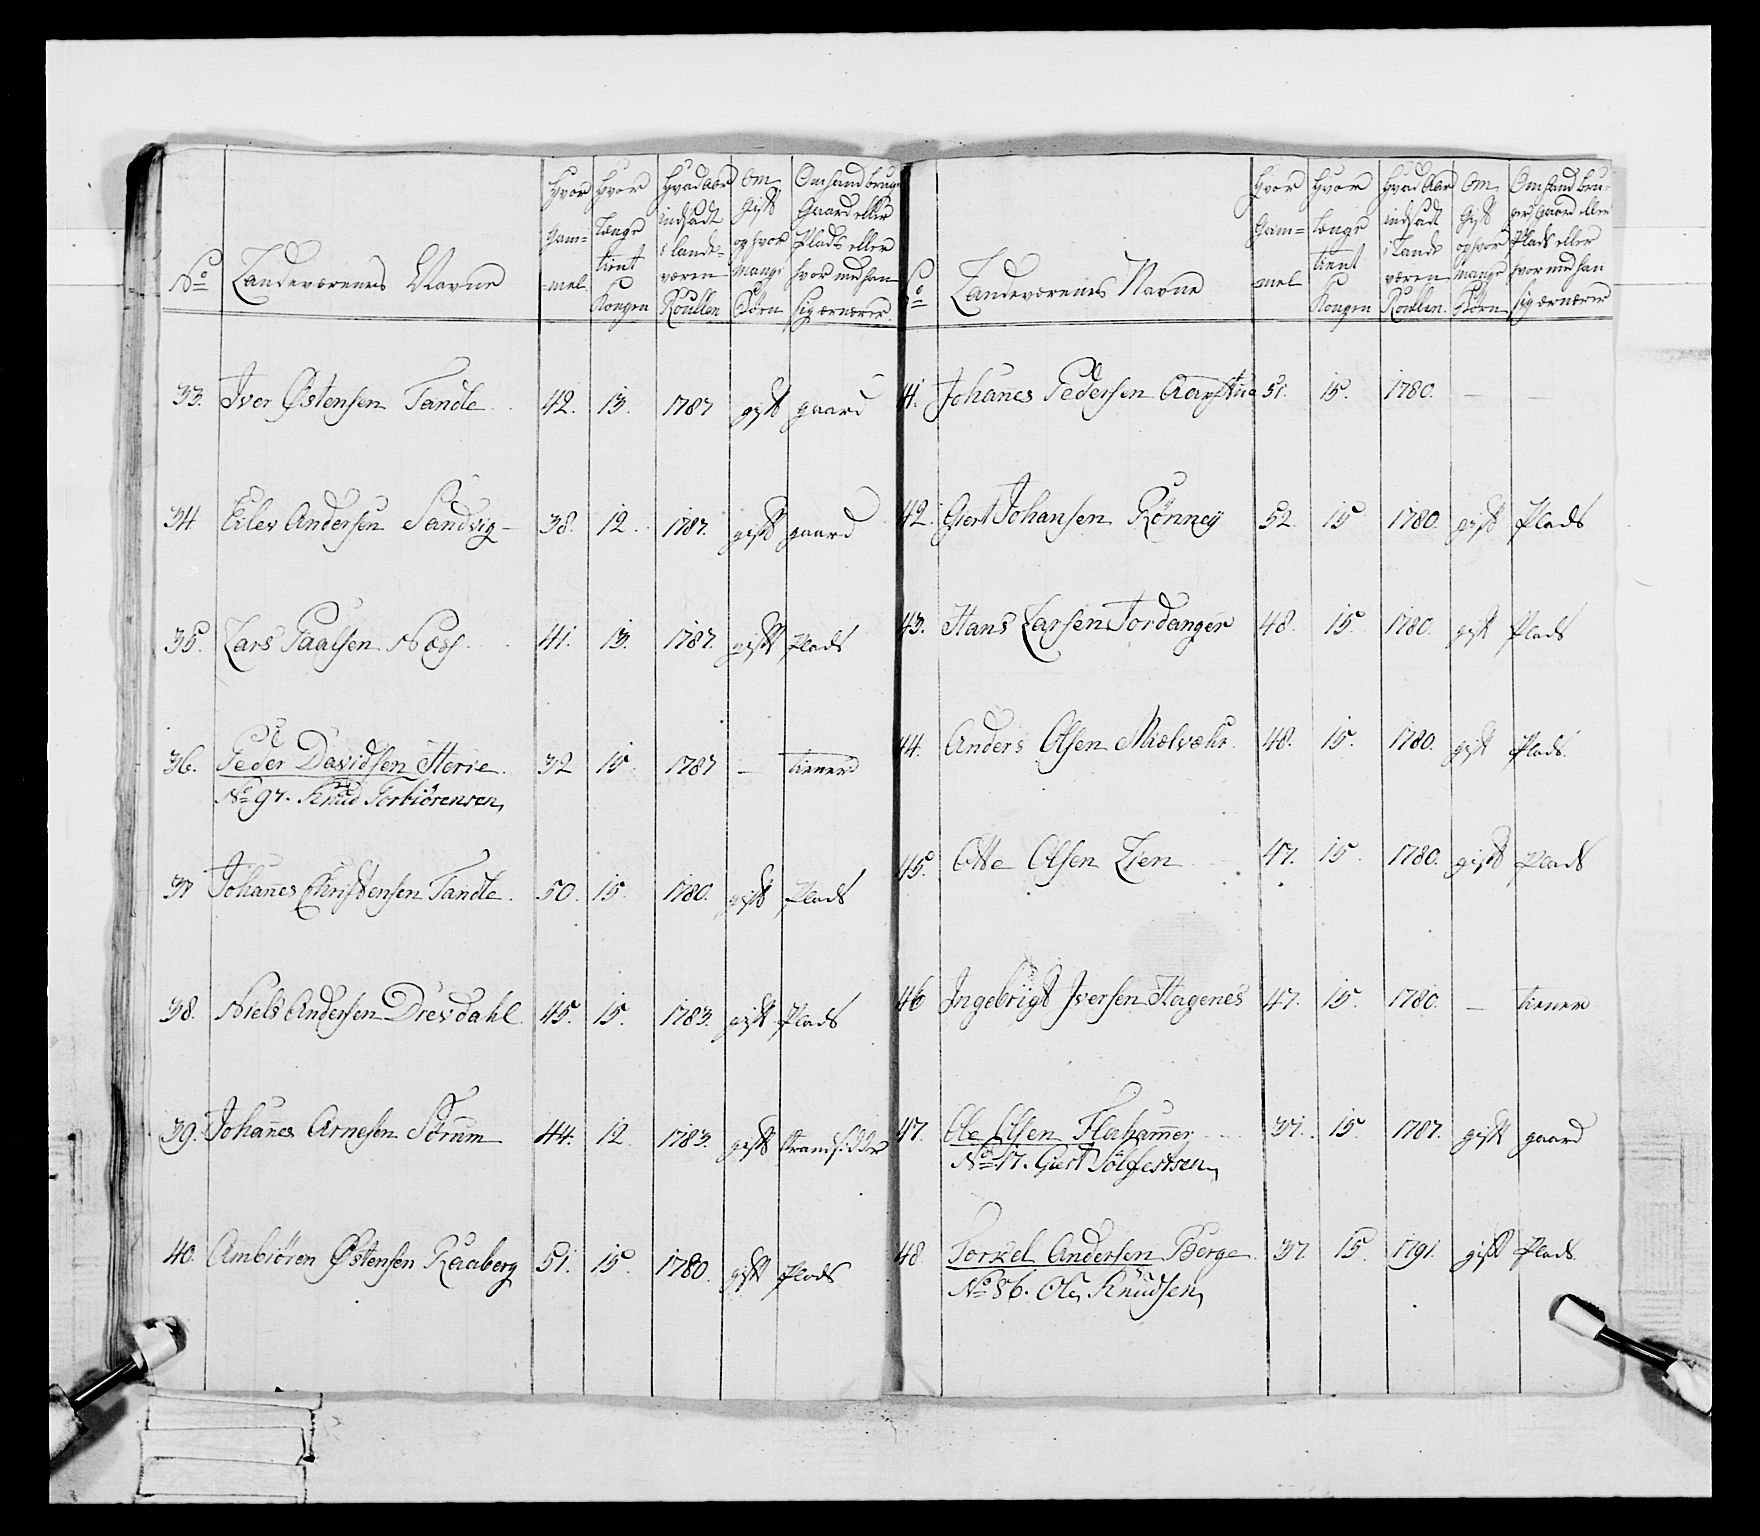 No Landeværnets Navne | Hvor Gammel | Hvor længe tient Kongen | Hvad Aar indsadt i landeværen Roullen | Om Gift og hvor mange Børn | Om hand bruger Gaard eller Plads eller hvor med han sig ernærer
33. Iver Østensen Tandle 42. 13. 1787 gift gaard
34 Eilev Andersen Sandvig 38. 12. 1787. gift gaard
35. Lars Paalsen Næss 41. 13. 1787. gift Plads
36. Peder Davidsen Herie. 32 15 1787 – tienend
No 97. Knud Torbiörensen,
37 Johanes Christensen Tandle. 50. 15. 1780. gift Plads
38. Niels Andersen Drevdahl 45. 15. 1783. gift Plads
39. Johanes Arnesen Sörum 44. 12. 1783. gift Strandsidder
40. Ambiören Østensen Raaberg 51. 15. 1780. gift Plads
No Landeværnets Navne | Hvor Gammel | Hvor længe tient Kongen | Hvad Aar indsadt i Lande væren Roullen. | Om Gift og hvor mange Börn | Om hand bruger Gaard eller Plads eller hvor med han sig ernærer
41. Johanes Pedersen 51. 15. 1780. –
42. Giert Johansen Rönney 52. 15 1780. gift Plads
43. Hans Larsen Tordanger 48. 15. 1780. gift Plads
44. Anders Olsen Miælvæhr. 48. 15. 1780. gift Plads.
45. Otte Olsen Lien 47. 15. 1780. gift Plads
46 Ingebrigt Iversen Hagenes 47. 15. 1780. – tiener
47. Ole Olsen Flahamer 37. 15. 1787. gift gaard
No 17. Giert Sölfestsen,
48 Torkel Andersen Berge 37. 15. 1791. gift Plads.
No 86. Ole Knudsen,